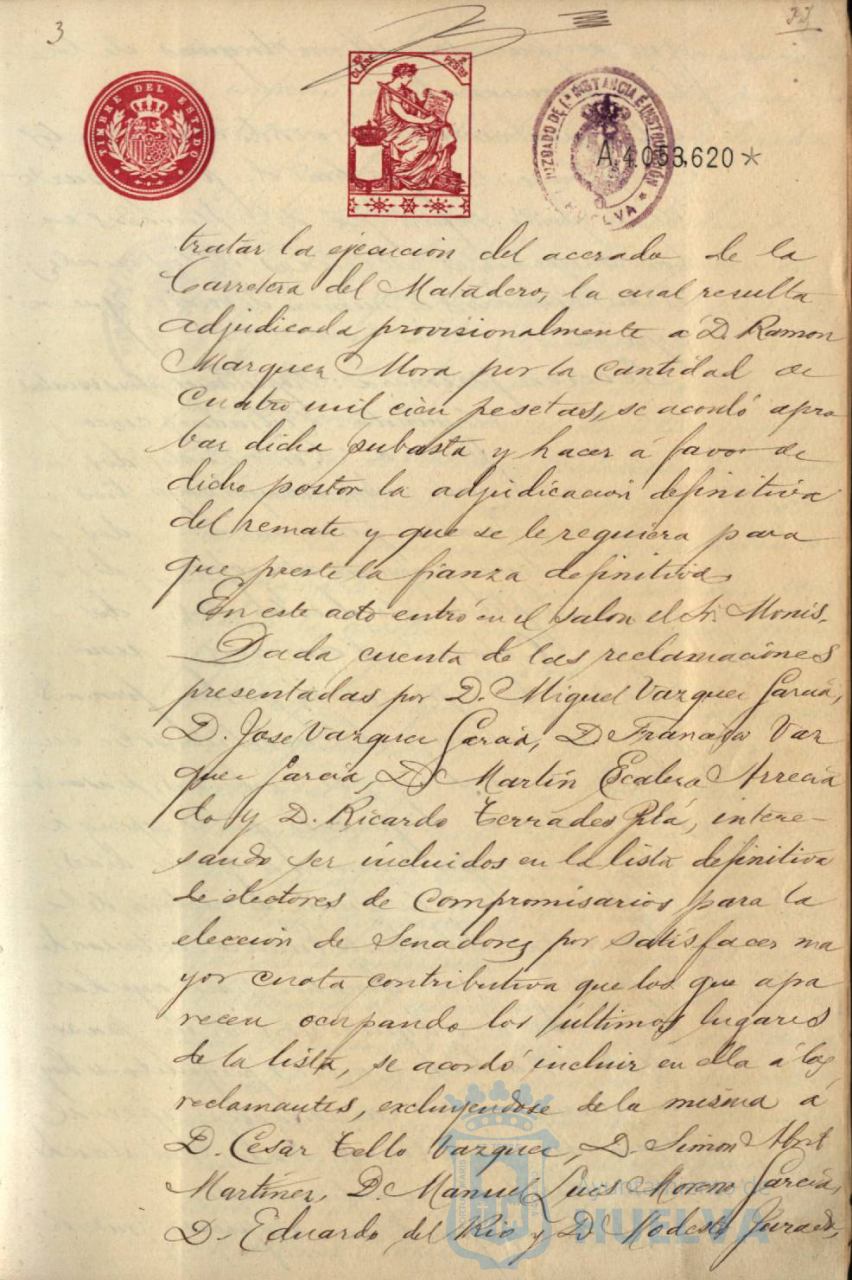 3
TIMBRE DEL ESTADO
CLASE
PESETAS
JUZGADO DE 1ª INSTANCIA E INSTRUCCIÓN
HUELVA
A.4.053.620*
tratar la ejecucion del acerado de la
Carretera del Matadero, la cual resulta
adjudicada provisionalmente a D. Ramon
Marquez Mora por la cantidad de
cuatro mil cien pesetas, se acordó apro
bar dicha subasta y hacer á favor de
dicho postor la adjudicacion definitiva
del remate y que se le requiera para
que preste la fianza definitiva
En este acto entró en el salon el Sr. Monis.
Dada cuenta de las reclamaciones
presentadas por D. Miguel Vazquez Garcia,
D. José Vazquez Garcia, D. Francisco Vaz
quez Garcia, D. Martin Escalera Arrecia
do y D. Ricardo Terrades Plá, intere-
sando ser incluidos en la lista definitiva
de electores de Compromisarios para la
eleccion de Senadores por satisfacer ma
yor cuota contributiva que los que apa
recen ocupando los últimos lugares
de la lista, se acordó incluir en ella á los
reclamantes, excluyendose de la misma á
D. Cesar Tello Vazquez, D. Simon Abril
Martinez, D. Manuel Luis Moreno Garcia,
D. Eduardo del Rio y D. Modesto Jurado,
Ayuntamiento de
HUELVA